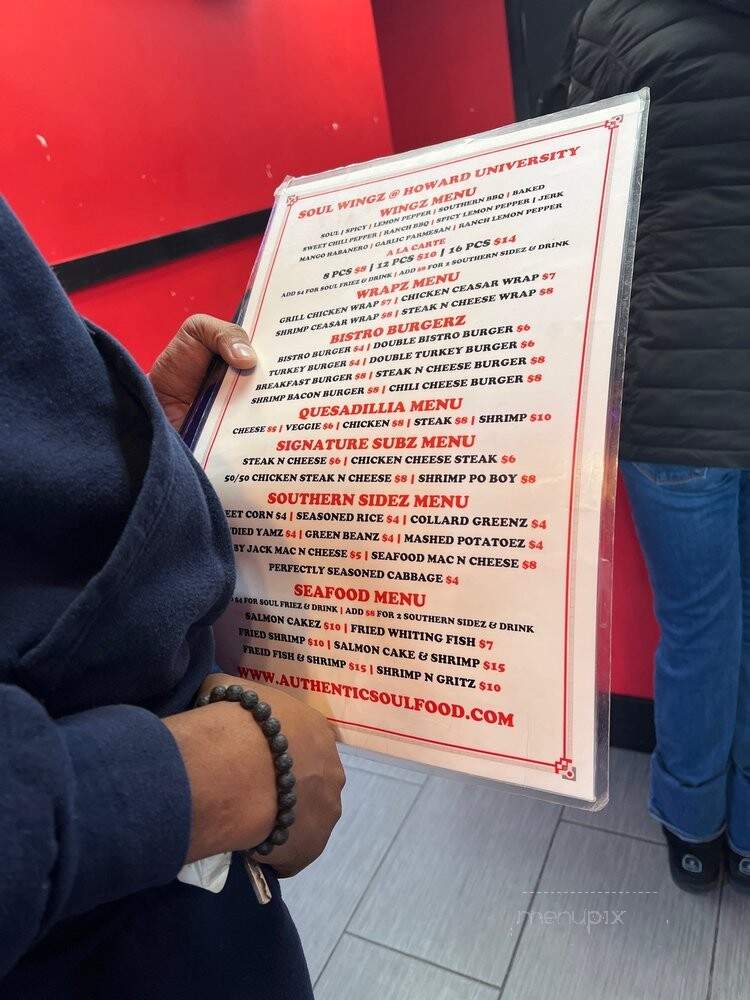 SOUL WINGZ @ HOWARD UNIVERSITY
WINGZ MENU
SOUL | SPICY | LEMON PEPPER | SOUTHERN BBQ | BAKED
SWEET CHILI PEPPER | RANCH BBQ | SPICY LEMON PEPPER | JERK
MANGO HABANERO | GARLIC PARMESAN | RANCH LEMON PEPPER
A LA CARTE
8 PCS $8 | 12 PCS $10 | 16 PCS $14
ADD $4 FOR SOUL FRIEZ & DRINK | ADD $8 FOR 2 SOUTHERN SIDEZ & DRINK
WRAPZ MENU
GRILL CHICKEN WRAP $7 | CHICKEN CEASAR WRAP $7
SHRIMP CEASAR WRAP $8 | STEAK N CHEESE WRAP $8
BISTRO BURGERZ
BISTRO BURGER $4 | DOUBLE BISTRO BURGER $6
TURKEY BURGER $4 | DOUBLE TURKEY BURGER $6
BREAKFAST BURGER $8 | STEAK N CHEESE BURGER $8
SHRIMP BACON BURGER $8 | CHILI CHEESE BURGER $8
QUESADILLIA MENU
CHEESE $5 | VEGGIE $6 | CHICKEN $8 | STEAK $8 | SHRIMP $10
SIGNATURE SUBZ MENU
STEAK N CHEESE $6 | CHICKEN CHEESE STEAK $6
50/50 CHICKEN STEAK N CHEESE $8 | SHRIMP PO BOY $8
SOUTHERN SIDEZ MENU
EET CORN $4 | SEASONED RICE $4 | COLLARD GREENZ $4
DIED YAMZ $4 | GREEN BEANZ $4 | MASHED POTATOEZ $4
BY JACK MAC N CHEESE $5 | SEAFOOD MAC N CHEESE $8
PERFECTLY SEASONED CABBAGE $4
SEAFOOD MENU
$4 FOR SOUL FRIEZ & DRINK | ADD $8 FOR 2 SOUTHERN SIDEZ & DRINK
SALMON CAKEZ $10 | FRIED WHITING FISH $7
FRIED SHRIMP $10 | SALMON CAKE & SHRIMP $15
FREID FISH & SHRIMP $15 | SHRIMP N GRITZ $10
WWW.AUTHENTICSOULFOOD.COM
menupix